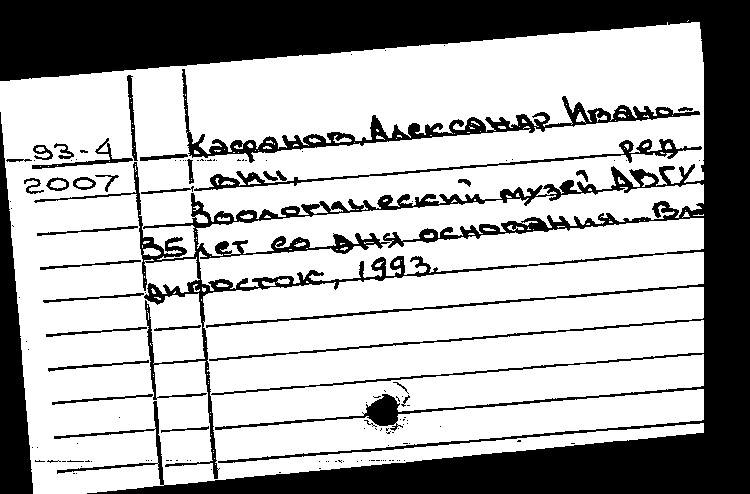 93-4
2007
Кафанов, Александр Ивано-
вич, ред.
Зоологический музей ДВГУ:
35 лет со дня основания. – Вла-
дивосток, 1993.